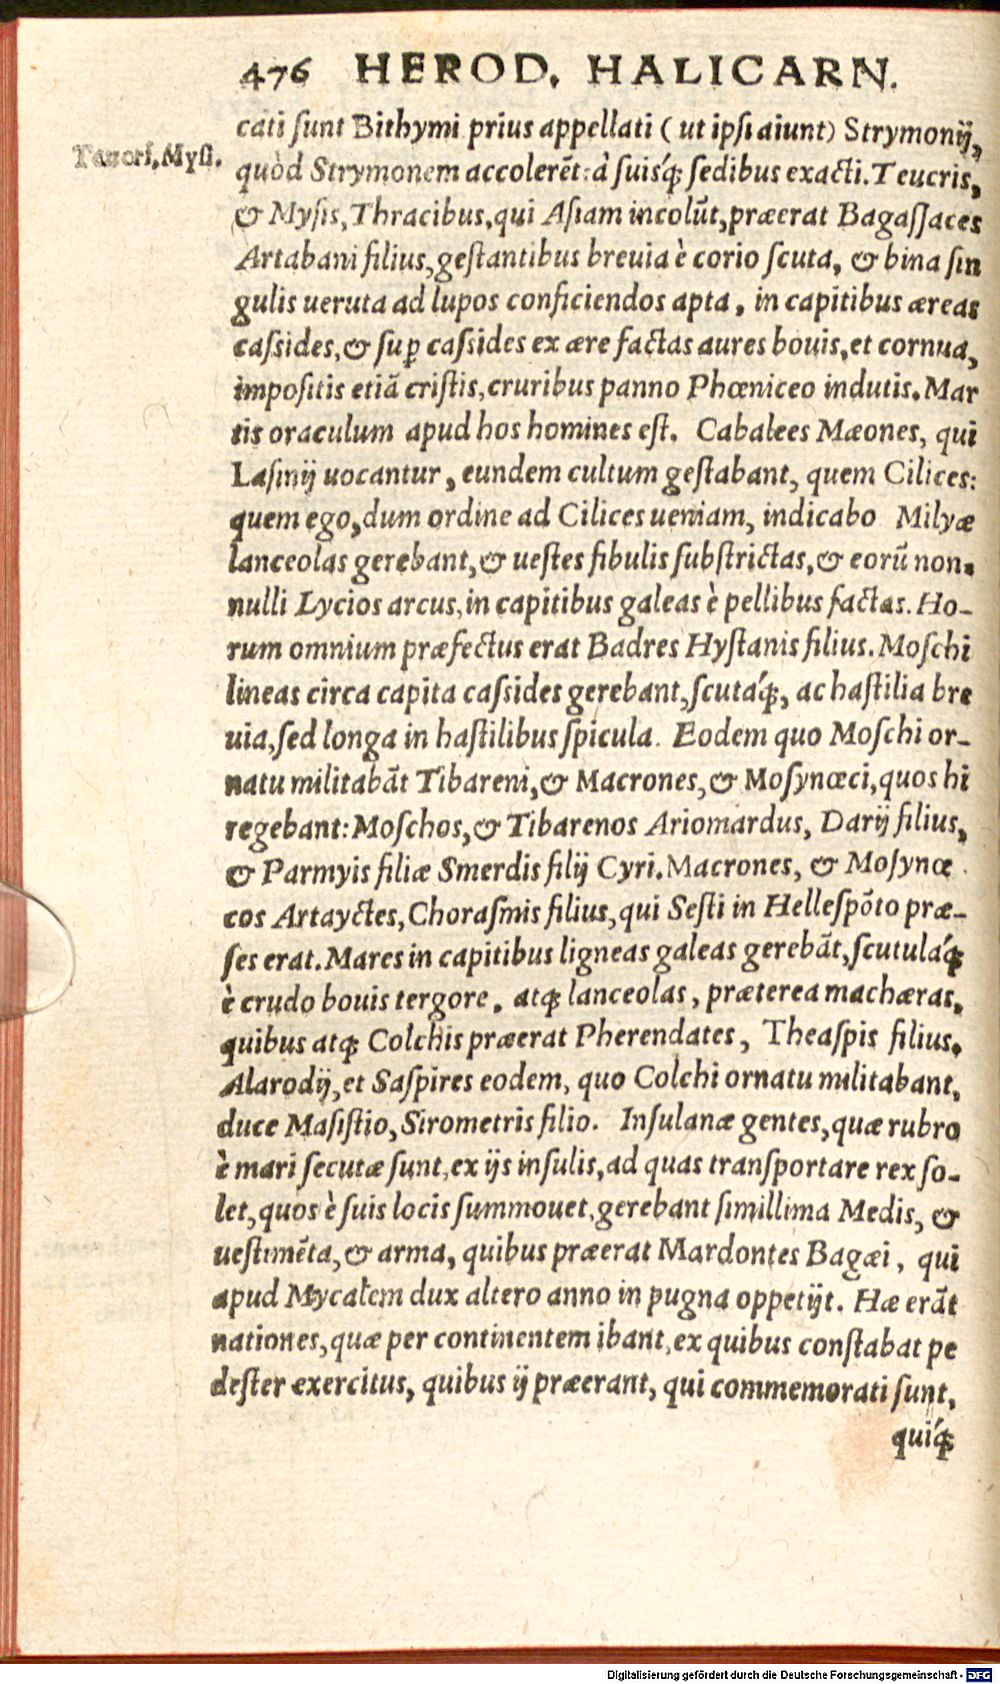 476 HEROD. HALICARN.
cati sunt Bithymi prius appellati (ut ipsi aiunt) Strymonij,
Teucri, Mysi.
quòd Strymonem accolerẽt: à suisq́; sedibus exacti. Teucris,
& Mysis, Thracibus, qui Asiam incolũt, præerat Bagassaces
Artabani filius, gestantibus breuia è corio scuta, & bina sin
gulis ueruta ad lupos conficiendos apta, in capitibus æreas
cassides, & sup̱ cassides ex ære factas aures bouis, et cornua,
impositis etiã cristis, cruribus panno Phœniceo indutis. Mar
tis oraculum apud hos homines est. Cabalees Mæones, qui
Lasinij uocantur, eundem cultum gestabant, quem Cilices:
quem ego, dum ordine ad Cilices ueniam, indicabo Milyæ
lanceolas gerebant, & uestes fibulis substrictas, & eorũ non-
nulli Lycios arcus, in capitibus galeas è pellibus factas. Ho-
rum omnium præfectus erat Badres Hystanis filius. Moschi
lineas circa capita cassides gerebant, scutaq́;, ac hastilia bre
uia, sed longa in hastilibus spicula. Eodem quo Moschi or-
natu militabãt Tibareni, & Macrones, & Mosynœci, quos hi
regebant: Moschos, & Tibarenos Ariomardus, Darij filius,
& Parmyis filiæ Smerdis filij Cyri. Macrones, & Mosynœ
cos Artayctes, Chorasmis filius, qui Sesti in Hellespõto præ-
ses erat. Mares in capitibus ligneas galeas gerebãt, scutulaq́;
è crudo bouis tergore, atq; lanceolas, præterea machæras,
quibus atq; Colchis præerat Pherendates, Theaspis filius.
Alarodij, et Saspires eodem, quo Colchi ornatu militabant,
duce Masistio, Sirometris filio. Insulanæ gentes, quæ rubro
è mari secutæ sunt, ex ijs insulis, ad quas transportare rex so-
let, quos è suis locis summouet, gerebant simillima Medis, &
uestimẽta, & arma, quibus præerat Mardontes Bagæi, qui
apud Mycalem dux altero anno in pugna oppetijt. Hæ erãt
nationes, quæ per continentem ibant, ex quibus constabat pe
dester exercitus, quibus ij præerant, qui commemorati sunt,
quiq́;
Digitalisierung gefördert durch die Deutsche Forschungsgemeinschaft - DFG